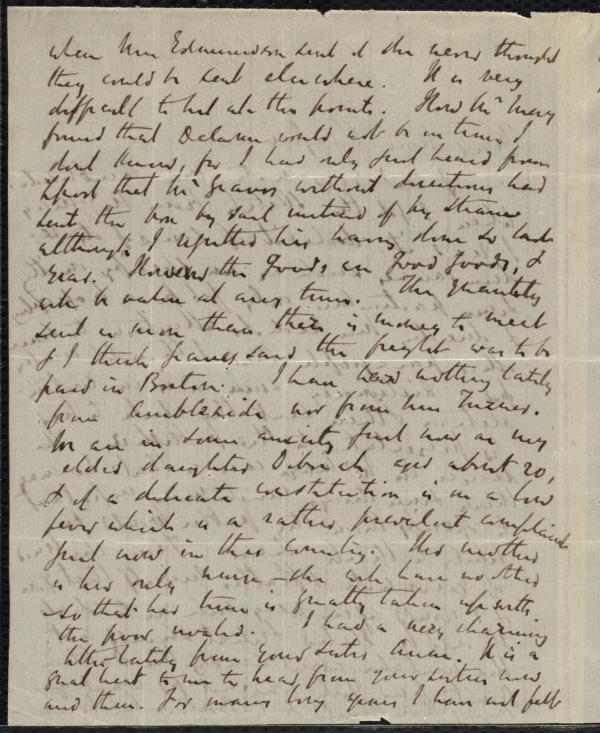 when Mrs Edmundson sent it she never thought
they could be sent elsewhere. It is very
difficult to hit all the points. How Mrs May
found that Delarue would not be in time I
dont know, for I had only just heard from
Lpool that Mr Graves without directions had
sent the box by sail instead of by steamer
although I regretted his having done so last
year. However the goods are good goods, &
will be value at any time. The quantity
sent is more than there is money to meet
& I think Graves said the freight was to be
paid in Boston. I have had nothing lately
from Ambleside nor from Mrs Turner.
We are in some anxiety just now as my
eldest daughter Deborah, aged about 20,
& of a delicate constitution is in a low
fever which is a rather prevalent complaint
just now in this country. Her mother
is her only nurse – she will have no other
– so that her time is greatly taken up with
the poor invalid. I had a very charming
letter lately from your sister Anne. It is a
great treat to me to hear from your sisters now
and then. For many long years I have not felt